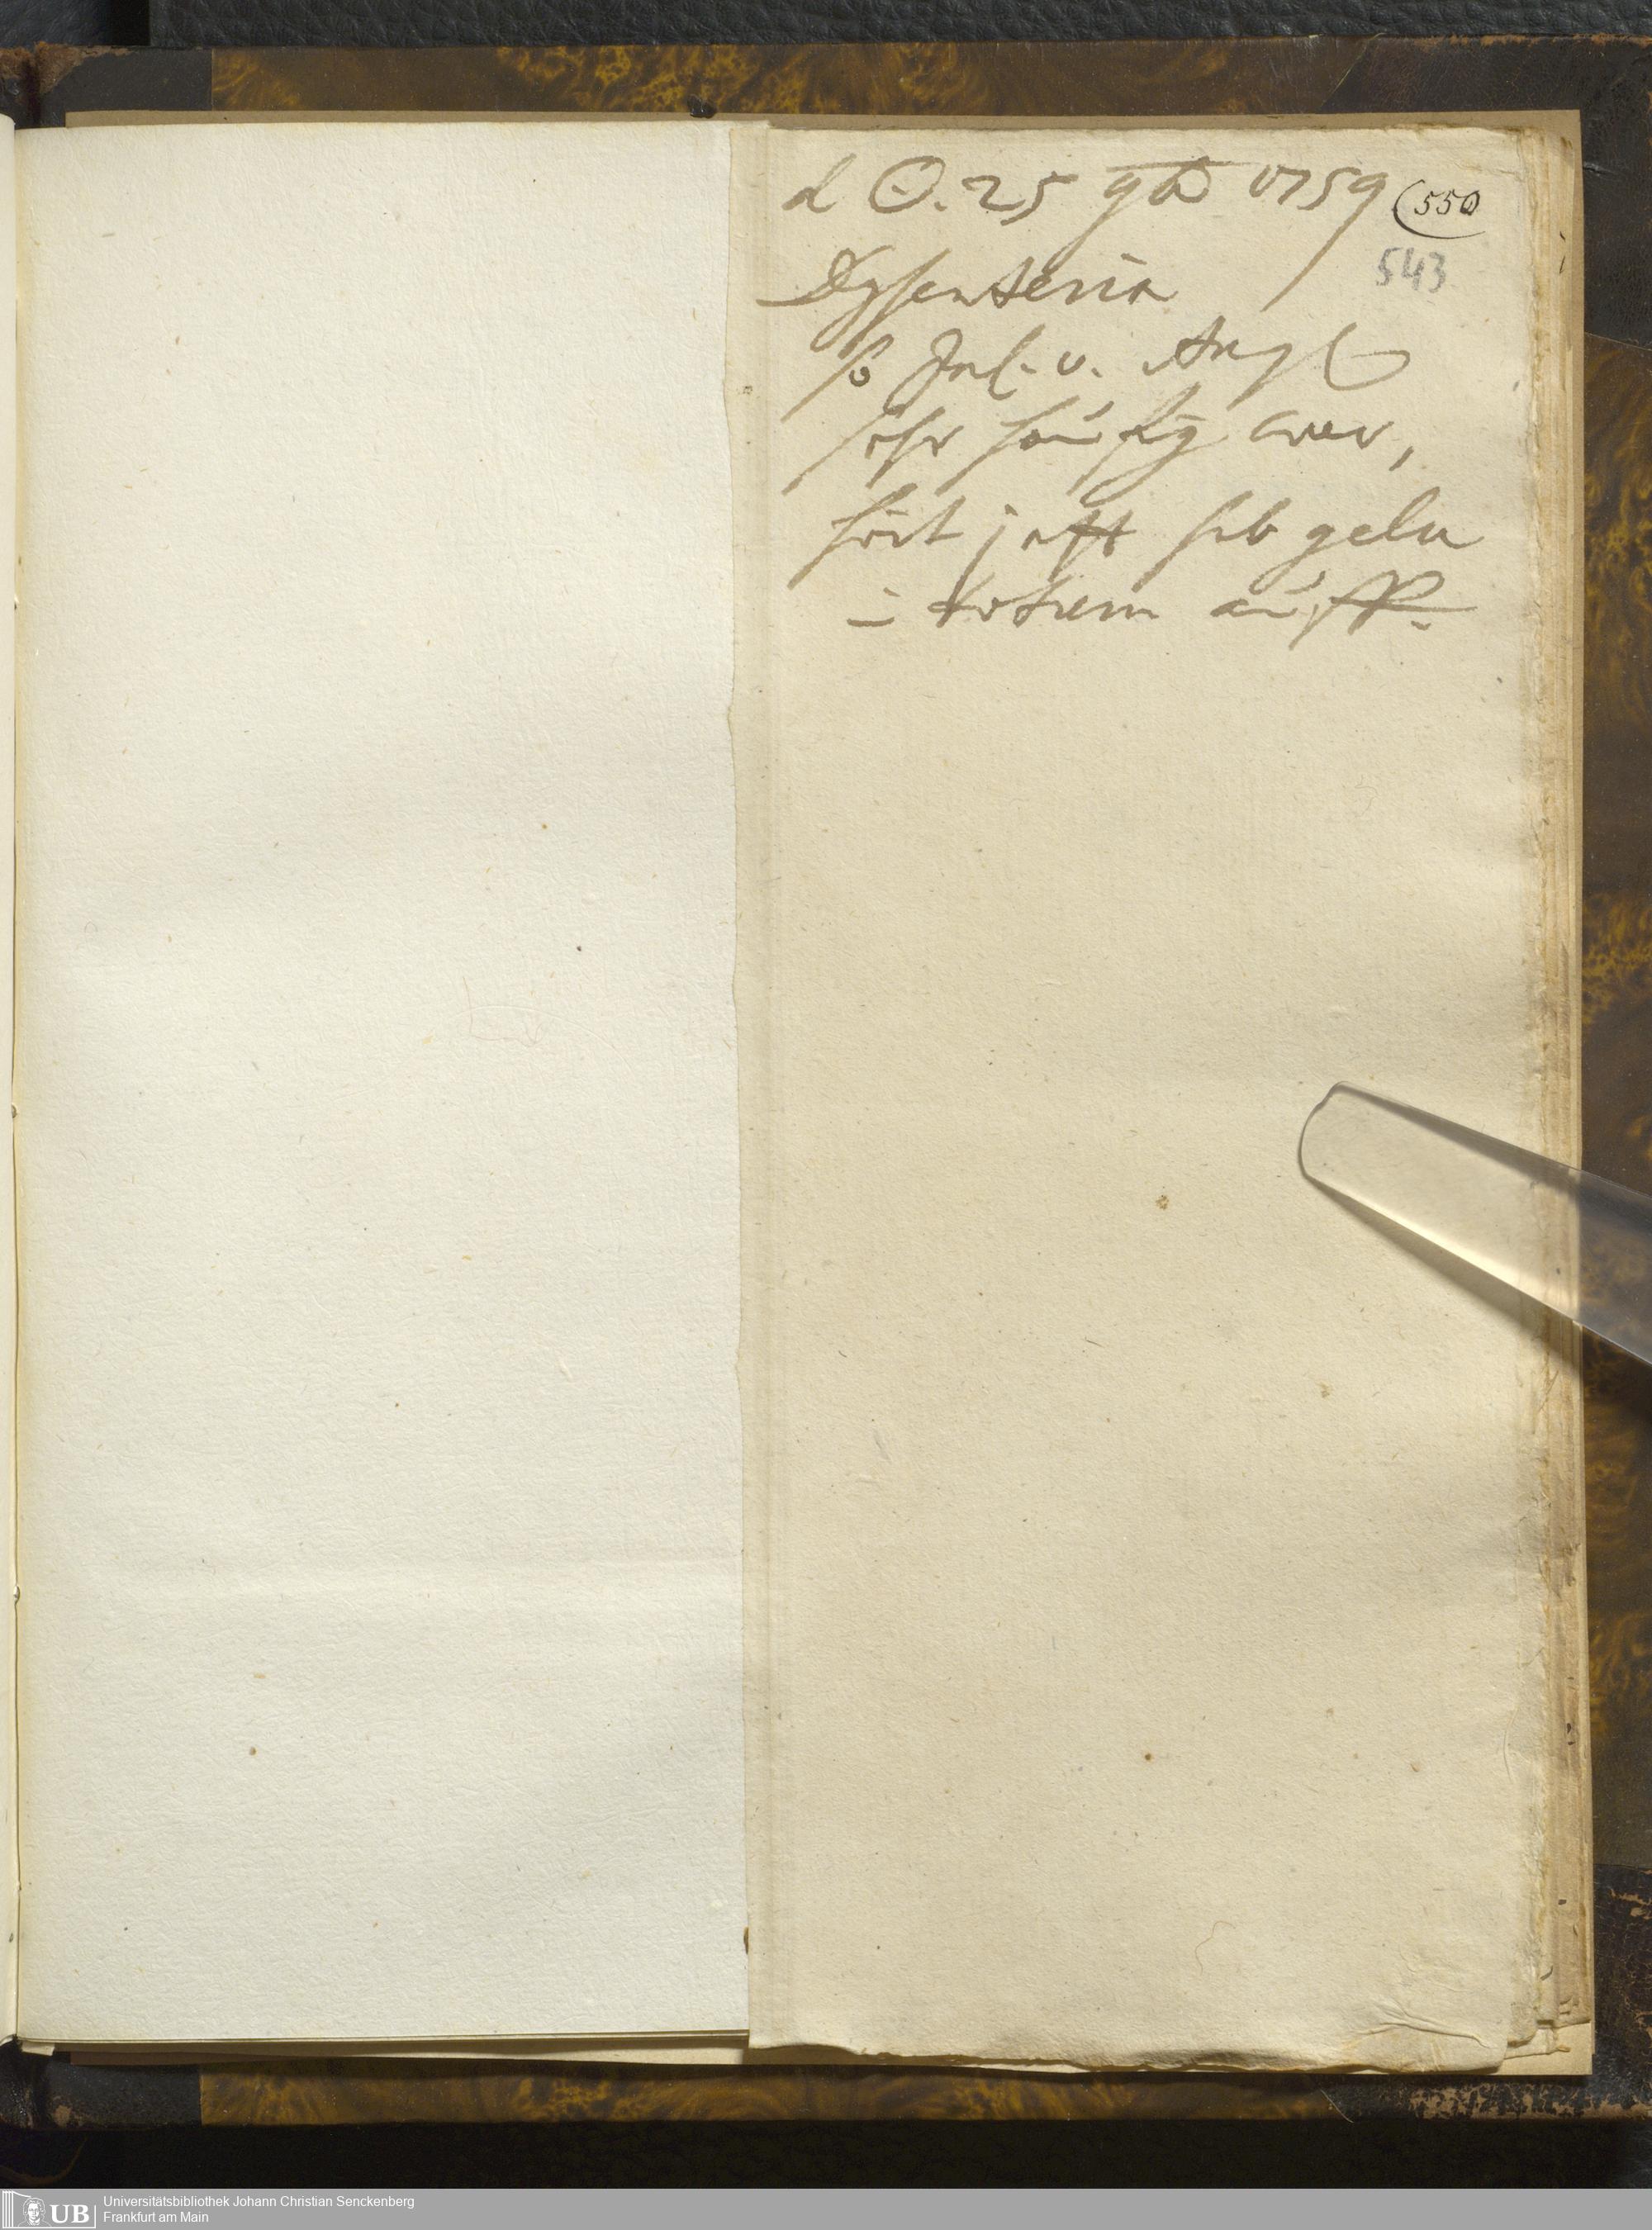 d ☉. 25 9b 1759 (550
543
Dysenteria
so Jul. u. Aug
sehr häufig war,
hört jetzt sub gelu
totum auff.
Universitätsbibliothek Johann Christian Senckenberg
UB Frankfurt am Main